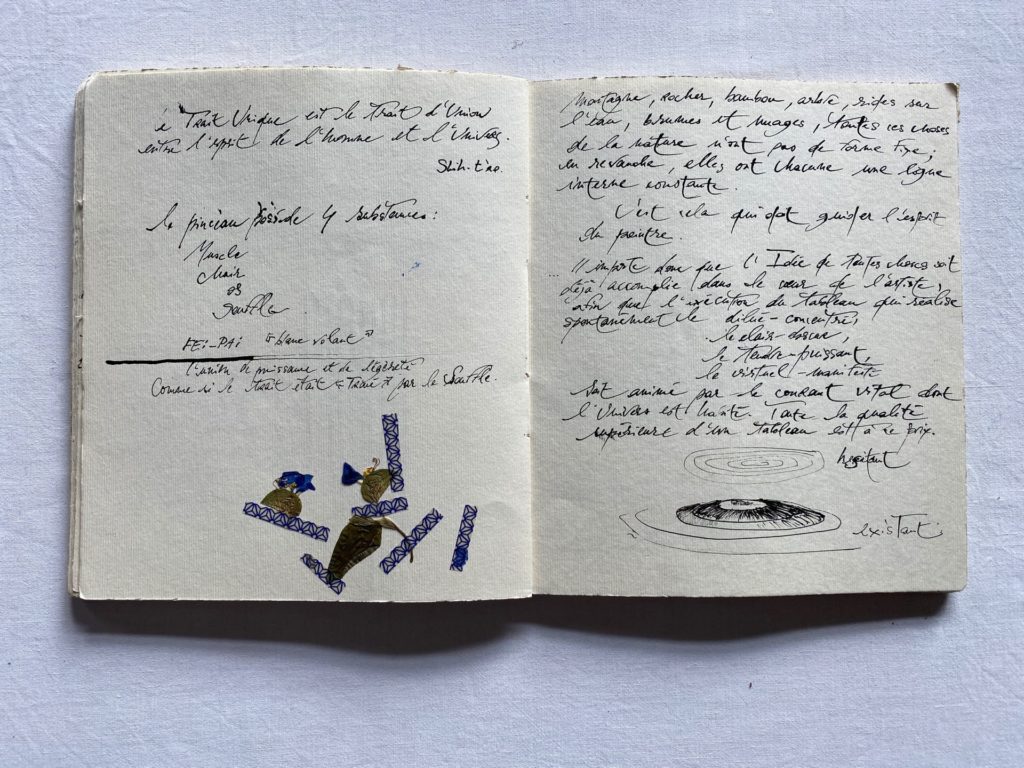 Le Trait Unique est le Trait d'Union
entre l'esprit de l'homme et l'Univers.
Shih-t'ao.
Le pinceau possède 4 substances :
Muscle
chair
os
Souffle
FEI-PAI "blanc volant"
l'union de puissance et de légèreté
Comme si le trait était "tramé" par le Souffle.
Montagne, rocher, bambou, arbre, rides sur
l'eau, brumes et nuages, toutes ces choses
de la nature n'ont pas de forme fixe ;
en revanche, elles ont chacune une ligne
interne constante.
C'est cela qui doit guider l'esprit
du peintre.
Il importe donc que l'Idée de toutes choses soit
déjà accomplie dans le cœur de l'artiste,
afin que l'exécution du tableau qui réalise
spontanément le dilué-concentré,
le clair-obscur,
le tendre-puissant,
le virtuel-manifeste
soit animé par le courant vital dont
l'Univers est habité. Toute la qualité
supérieure d'un tableau est à ce prix.
existant